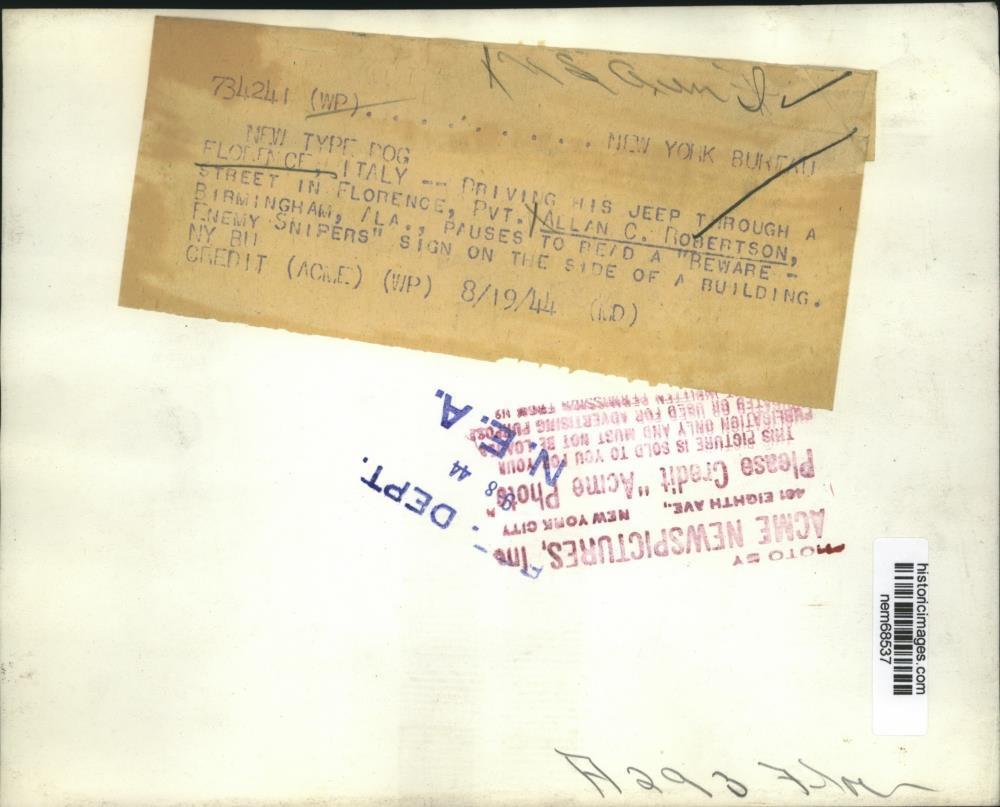 734241 (WP). . . . . . . . . . . NEW YORK BUREAU
NEW TYPE DOG
FLORENCE, ITALY -- DRIVING HIS JEEP THROUGH A
STREET IN FLORENCE, PVT. ALLAN C. ROBERTSON,
BIRMINGHAM, ALA., PAUSES TO READ A "BEWARE -
ENEMY SNIPERS" SIGN ON THE SIDE OF A BUILDING.
NY BU
CREDIT (ACME) (WP) 8/19/44 (MD)
PHOTO BY
ACME NEWSPICTURES, Inc
461 EIGHTH AVE., NEW YORK CITY
Please Credit "Acme Photo"
THIS PICTURE IS SOLD TO YOU FOR YOUR
PUBLICATION ONLY AND MUST NOT BE LOANED
OR USED FOR ADVERTISING PURPOSE
WRITTEN PERMISSION FROM US
DEPT.
44
N.E.A.
historicimages.com
nem68537